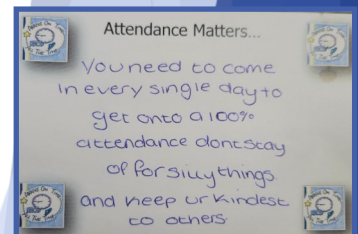 Attendance Matters...
You need to come
in every single day to
get onto a 100%
attendance dont stay
of for silly things
and keep ur kindest
to others